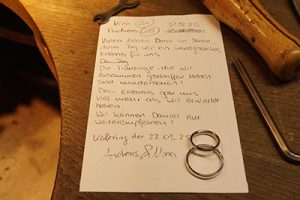 Nina (24)
Andreas (25)
Vielen lieben Dank an Daniel,
dieser Tag war ein unvergessliches
Erlebnis für uns.
Die Trauringe, die wir
zusammen geschaffen haben
sind wunderschön!
Das Erlebnis gab uns
viel mehr als wir erwartet
haben.
Wir können Daniel nur
weiterempfehlen!
den 22.03.25
Andreas & Nina